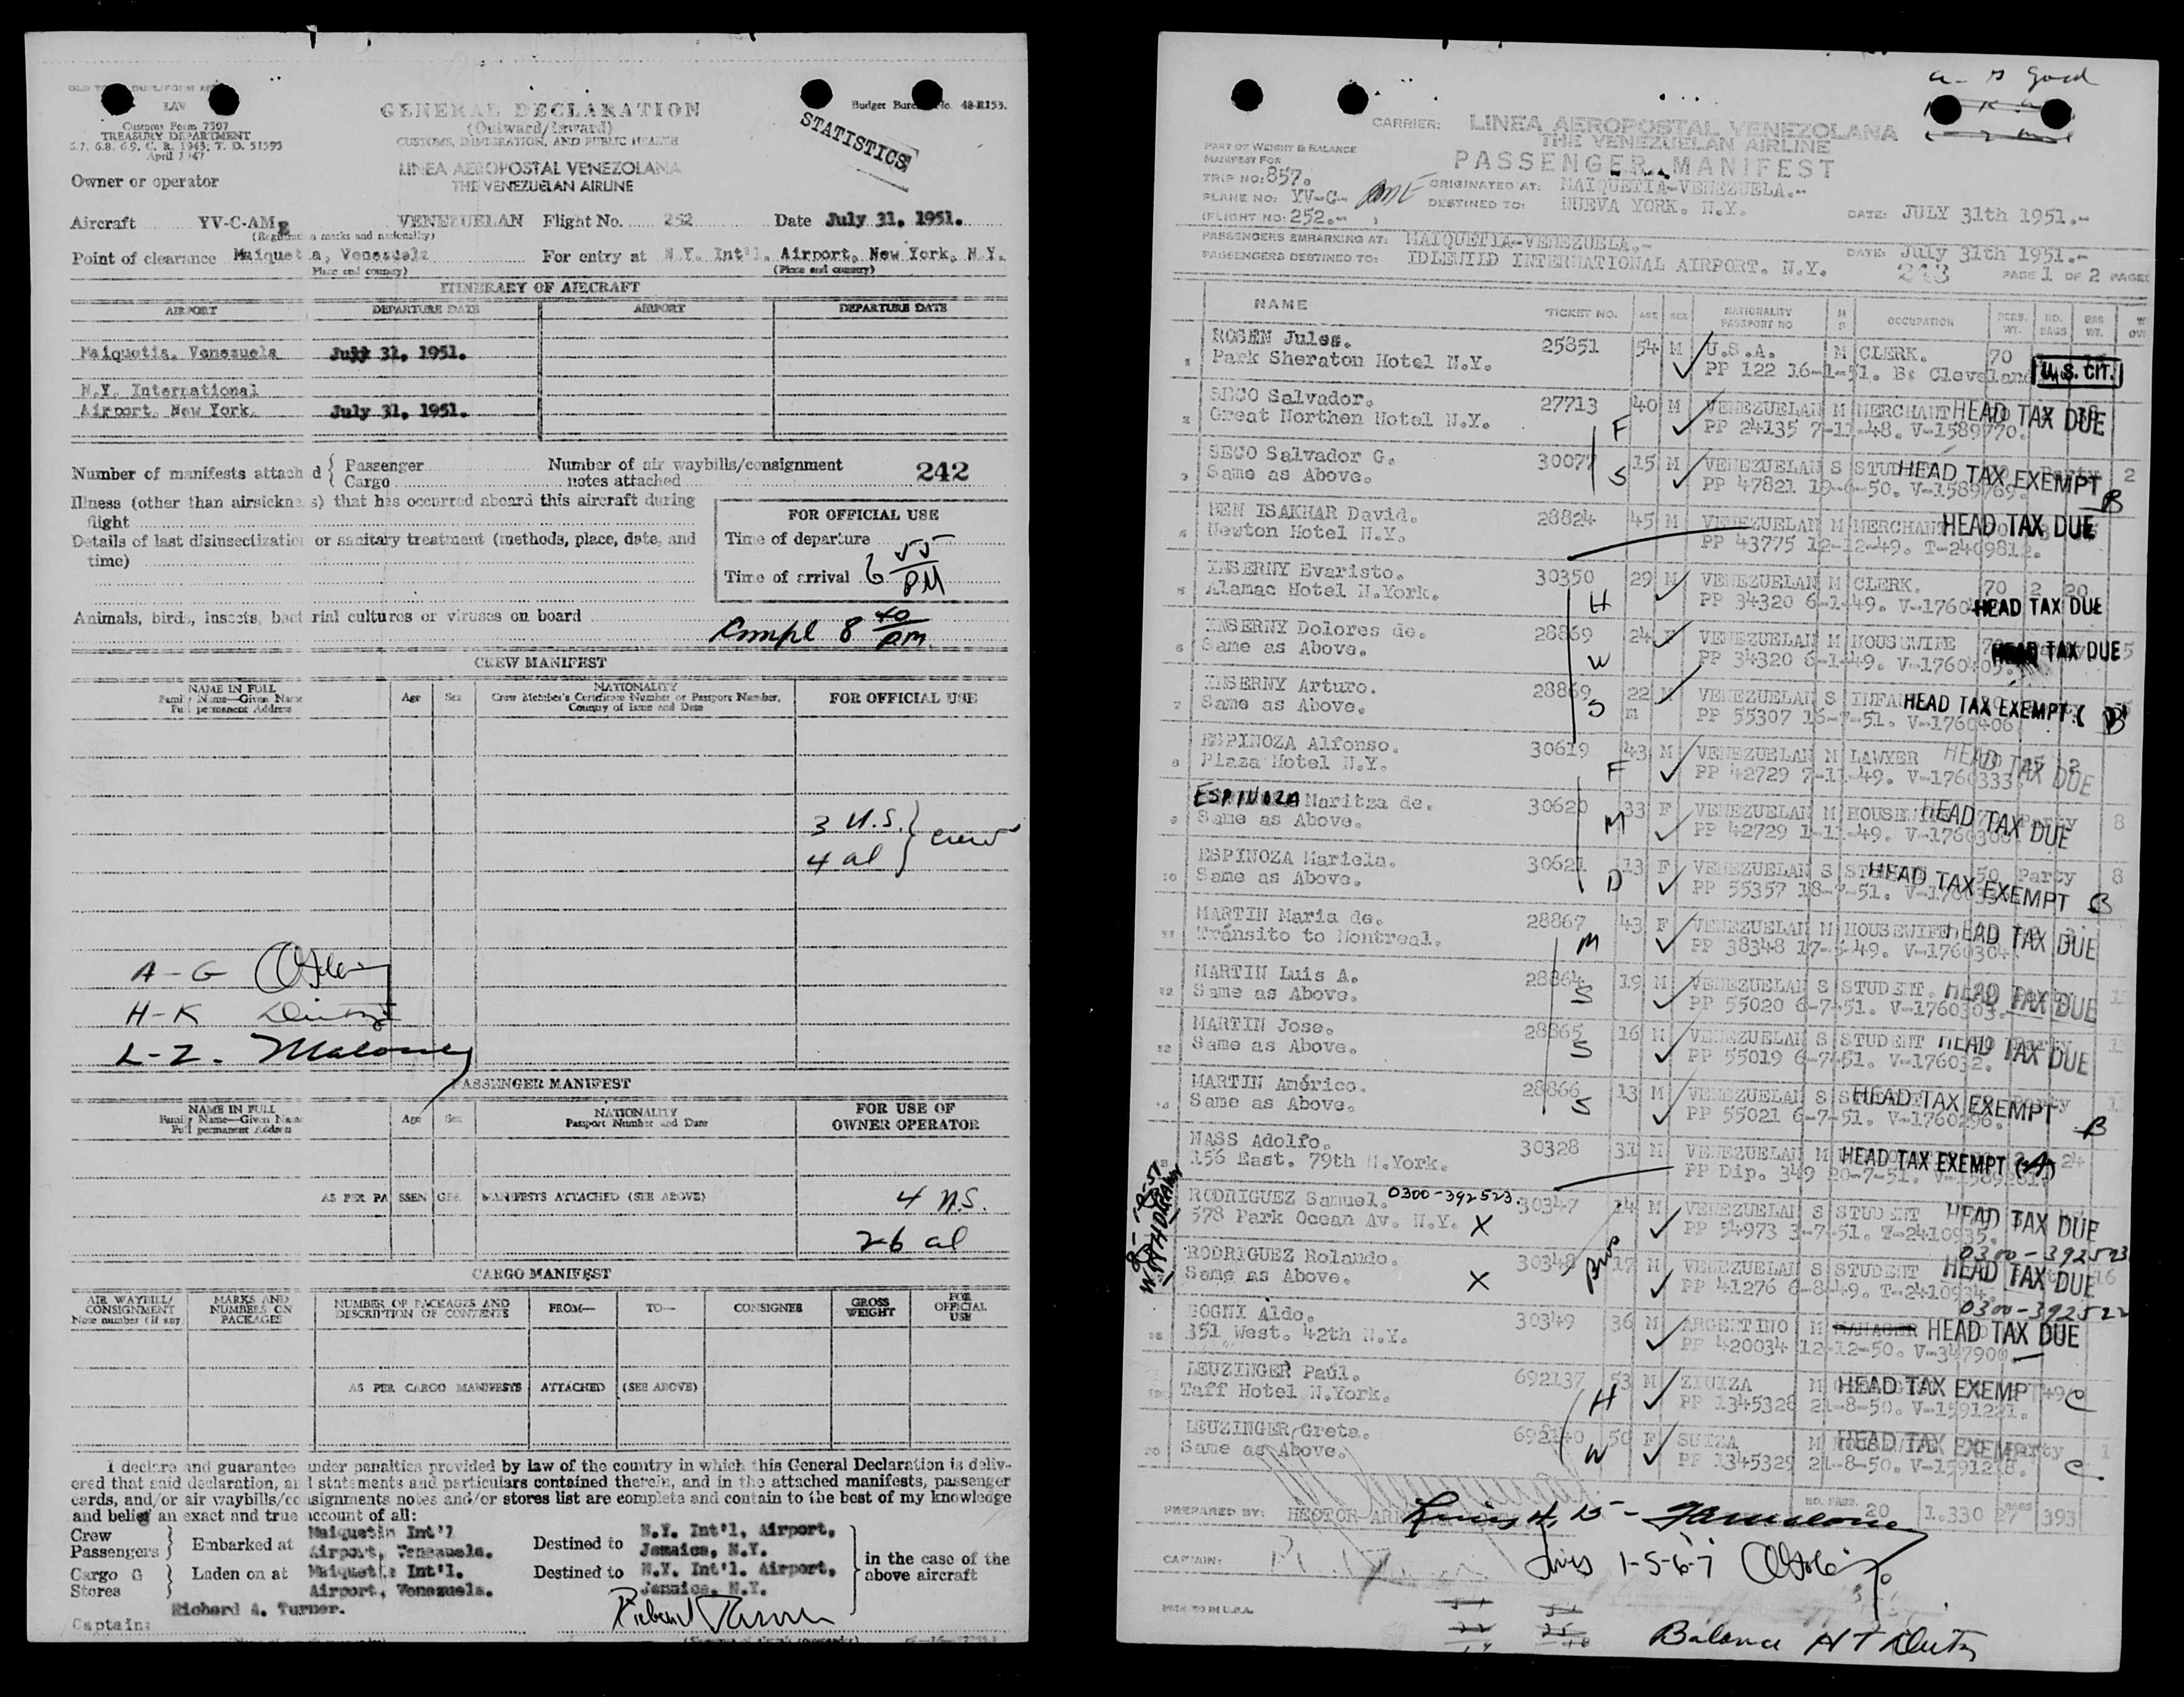 LAW
Customs Form 7507
TREASURY DEPARTMENT
5.7, 6.8, 6.9, C. R. 1943; T. D. 51595
April 1947
GENERAL DECLARATION
(Outward/Inward)
CUSTOMS, IMMIGRATION, AND PUBLIC HEALTH
Budget Bureau No. 48-R153.
STATISTICS
LINEA AEROPOSTAL VENEZOLANA
THE VENEZUELAN AIRLINE
Owner or operator
Aircraft YV-C-AME VENEZUELAN Flight No. 252 Date July 31, 1951.
(Registration marks and nationality)
Point of clearance Maiquetia, Venezuela For entry at N.Y. Int'l. Airport, New York, N.Y.
(Place and country) (Place and country)
ITINERARY OF AIRCRAFT
AIRPORT DEPARTURE DATE AIRPORT DEPARTURE DATE
Maiquetia, Venezuela July 31, 1951.
N.Y. International
Airport, New York. July 31, 1951.
Number of manifests attached { Passenger Number of air waybills/consignment 242
Cargo notes attached
Illness (other than airsickness) that has occurred aboard this aircraft during
flight
Details of last disinsectization or sanitary treatment (methods, place, date, and
time)
FOR OFFICIAL USE
Time of departure
Time of arrival 6 55 PM
Animals, birds, insects, bacterial cultures or viruses on board
Compl 8 40 PM.
CREW MANIFEST
NAME IN FULL
Family Name—Given Name
Full permanent Address
Age Sex
NATIONALITY
Crew Member's Certificate Number or Passport Number,
Country of Issue and Date
FOR OFFICIAL USE
3 U.S. } crew
4 al
A-G
H-K
L-Z. Maloney
PASSENGER MANIFEST
NAME IN FULL
Family Name—Given Name
Full permanent Address
Age Sex
NATIONALITY
Passport Number and Date
FOR USE OF
OWNER OPERATOR
AS PER PASSENGER MANIFESTS ATTACHED (SEE ABOVE)
4 U.S.
26 al
CARGO MANIFEST
AIR WAYBILL/
CONSIGNMENT
Note number (if any)
MARKS AND
NUMBERS ON
PACKAGES
NUMBER OF PACKAGES AND
DESCRIPTION OF CONTENTS
FROM— TO— CONSIGNEE
GROSS
WEIGHT
FOR
OFFICIAL
USE
AS PER CARGO MANIFESTS ATTACHED (SEE ABOVE)
I declare and guarantee under penalties provided by law of the country in which this General Declaration is deliv-
ered that said declaration, and statements and particulars contained therein, and in the attached manifests, passenger
cards, and/or air waybills/consignments notes and/or stores list are complete and contain to the best of my knowledge
and belief an exact and true account of all:
Crew } Embarked at Maiquetia Int'l Destined to N.Y. Int'l. Airport,
Passengers Airport, Venezuela. Jamaica, N.Y.
Cargo G } Laden on at Maiquetia Int'l. Destined to N.Y. Int'l. Airport,
Stores Airport, Venezuela. Jamaica, N.Y.
in the case of the
above aircraft
Richard A. Turner.
Captain:
Richard Turner
CARRIER: LINEA AEROPOSTAL VENEZOLANA
THE VENEZUELAN AIRLINE
PASSENGER MANIFEST
PART OF WEIGHT & BALANCE
MANIFEST FOR
TRIP NO: 857.
PLANE NO: YV-C- AME
(FLIGHT NO: 252.- )
ORIGINATED AT: MAIQUETIA-VENEZUELA.-
DESTINED TO: NUEVA YORK. N.Y. DATE: JULY 31th 1951.-
PASSENGERS EMBARKING AT: MAIQUETIA-VENEZUELA.- DATE: July 31th 1951.-
PASSENGERS DESTINED TO: IDLEWILD INTERNATIONAL AIRPORT. N.Y. 243 PAGE 1 OF 2 PAGES
NAME TICKET NO. AGE SEX NATIONALITY PASSPORT NO M S OCCUPATION PERS. WT. NO. BAGS BAG WT.
1 ROSEN Jules. 25851 54 M U.S.A. M CLERK. 70
Park Sheraton Hotel N.Y. PP 122 16-1-51. B: Cleveland U.S. CIT.
2 SECO Salvador. 27713 40 M VENEZUELAN M MERCHANT HEAD TAX DUE
Great Northen Hotel N.Y. F PP 24135 7-11-48. V-1589770.
3 SECO Salvador G. 30077 15 M VENEZUELAN S HEAD TAX EXEMPT 2
Same as Above. S PP 47821 19-6-50. V-1589769. B
4 BEN ISAKHAR David. 28824 45 M VENEZUELAN M MERCHANT HEAD TAX DUE
Newton Hotel N.Y. PP 43775 12-12-49. T-2409812.
5 INSERNY Evaristo. 30350 29 M VENEZUELAN M CLERK. 70 2 20
Alamac Hotel N.York. H PP 34320 6-1-49. HEAD TAX DUE
6 INSERNY Dolores de. 28869 24 F VENEZUELAN M HOUSEWIFE HEAD TAX DUE 5
Same as Above. W PP 34320 6-1-49. V-1760405.
7 INSERNY Arturo. 28869 22 M VENEZUELAN S INFANT HEAD TAX EXEMPT (B)
Same as Above. S m PP 55307 16-7-51. V-1760406.
8 ESPINOZA Alfonso. 30619 43 M VENEZUELAN M LAWYER HEAD TAX DUE
Plaza Hotel N.Y. F PP 42729 7-11-49. V-1760333.
9 ESPINOZA Maritza de. 30620 33 F VENEZUELAN M HEAD TAX DUE Party 8
Same as Above. M PP 42729 1-11-49.
10 ESPINOZA Mariela. 30621 13 F VENEZUELAN S HEAD TAX EXEMPT 50 Party 8
Same as Above. D PP 55357 18-7-51. B
11 MARTIN Maria de. 28867 43 F VENEZUELAN M HOUSEWIFE HEAD TAX DUE
Tránsito to Montreal. M PP 38348 17-5-49. V-1760304.
12 MARTIN Luis A. 28864 19 M VENEZUELAN S STUDENT. HEAD TAX DUE
Same as Above. S PP 55020 6-7-51. V-1760303.
13 MARTIN Jose. 28865 16 M VENEZUELAN S STUDENT HEAD TAX DUE
Same as Above. S PP 55019 6-7-51. V-176032.
14 MARTIN Américo. 28866 13 M VENEZUELAN S HEAD TAX EXEMPT
Same as Above. S PP 55021 6-7-51. V-1760296. B
NASS Adolfo. 30328 31 M VENEZUELAN M HEAD TAX EXEMPT (A) 24
156 East. 79th N.York. PP Dip. 349 20-7-51.
WITHDRAWN
RODRIGUEZ Samuel. 0300-392523. 30347 14 M VENEZUELAN S STUDENT HEAD TAX DUE
578 Park Ocean Av. N.Y. X PP 54973 3-7-51. T-2410935. 0300-392523
RODRIGUEZ Rolando. 30348 17 M VENEZUELAN S STUDENT HEAD TAX DUE 16
Same as Above. X Bros PP 41276 6-8-49. T-2410934. 0300-392522
18 GOGNI Aldo. 30349 36 M ARGENTINO M MANAGER HEAD TAX DUE
351 West. 42th N.Y. PP 420034 12-12-50. V-347900.
LEUZINGER Paúl. 692137 53 M ZIUIZA M HEAD TAX EXEMPT 49 C
Taff Hotel N.York. H PP 1345328 21-8-50. V-1591221.
20 LEUZINGER Greta. 692140 50 F SUIZA M HEAD TAX EXEMPT Party
Same as Above. W PP 1345329 21-8-50. V-1591218. C
PREPARED BY: HECTOR NO. PASS. 20 1.330 27 393
CAPTAIN:
lines 1-5-6-7
PRINTED IN U.S.A.
Balance HT